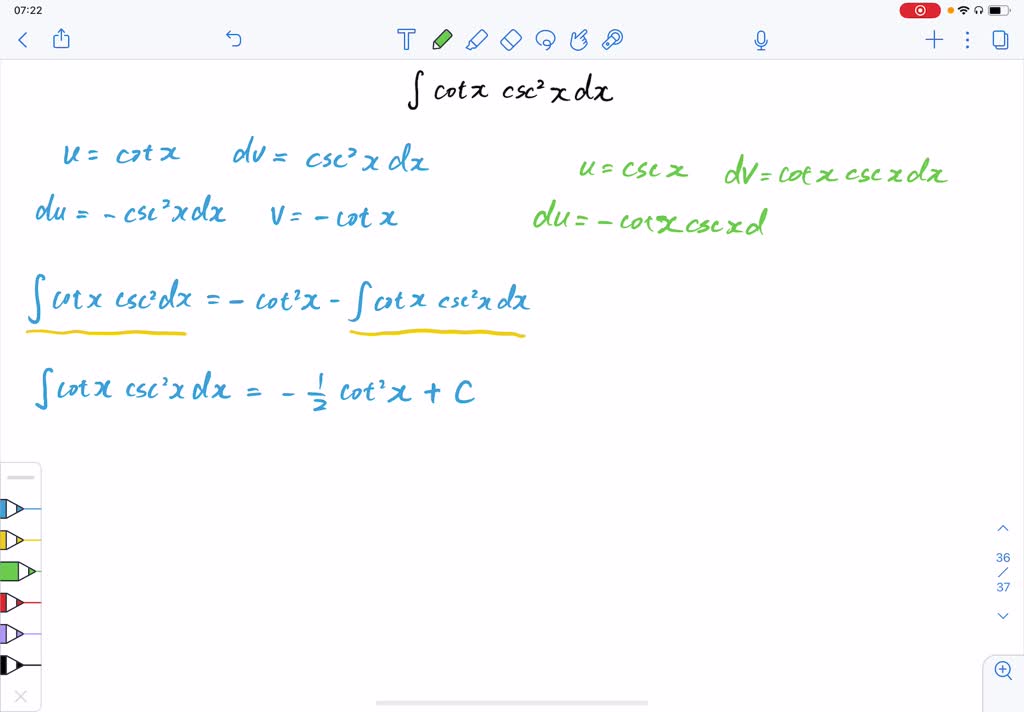 07:22
∫ cot x csc² x dx
u = cot x dv = csc² x dx
du = - csc² x dx v = - cot x
u = csc x dv = cot x csc x dx
du = - cot x csc x d
∫ cot x csc² dx = - cot² x - ∫ cot x csc² x dx
∫ cot x csc² x dx = - 1/2 cot² x + C
36
/
37